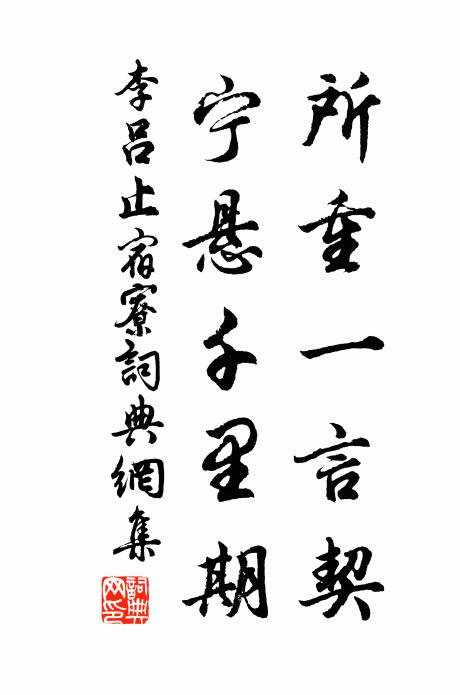 所重一言契
宁悬千里期
李吕止宿寮詞典網集
詞典網印